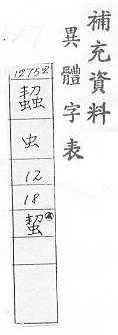 補充資料
異體字表
12752
虫
12
18